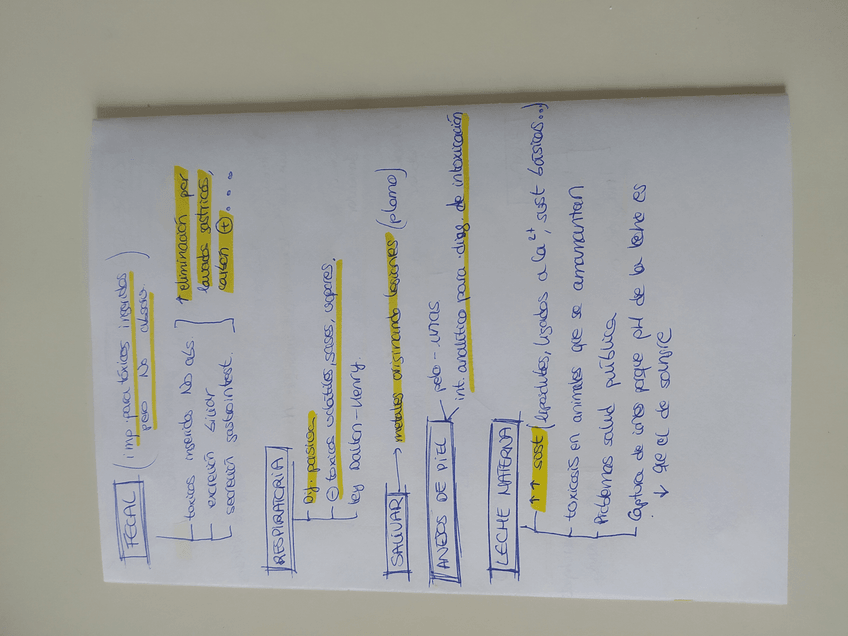 FECAL (imp. para tóxicos ingeridos
pero NO absorb.)
tóxicos ingerido NO abs
excreción biliar
secreción gastrointest.
↑ eliminación por
lavado gástricos,
carbón ⊕...
RESPIRATORIA
Dif. pasiva
⊖ tóxicos volátiles, gases, vapores.
ley Dalton-Henry.
SALIVAR → metales originando lesiones (plomo)
ANEJOS DE PIEL pelo - uñas
int. analítico para diag. de intoxicación
LECHE MATERNA
↑↑ sust (liposolubles, ligados a Ca2+, sust básicas...)
toxicosis en animales que se amamantan
Problemas salud pública
Captura de iones porque pH de la leche es
↓ que el de sangre